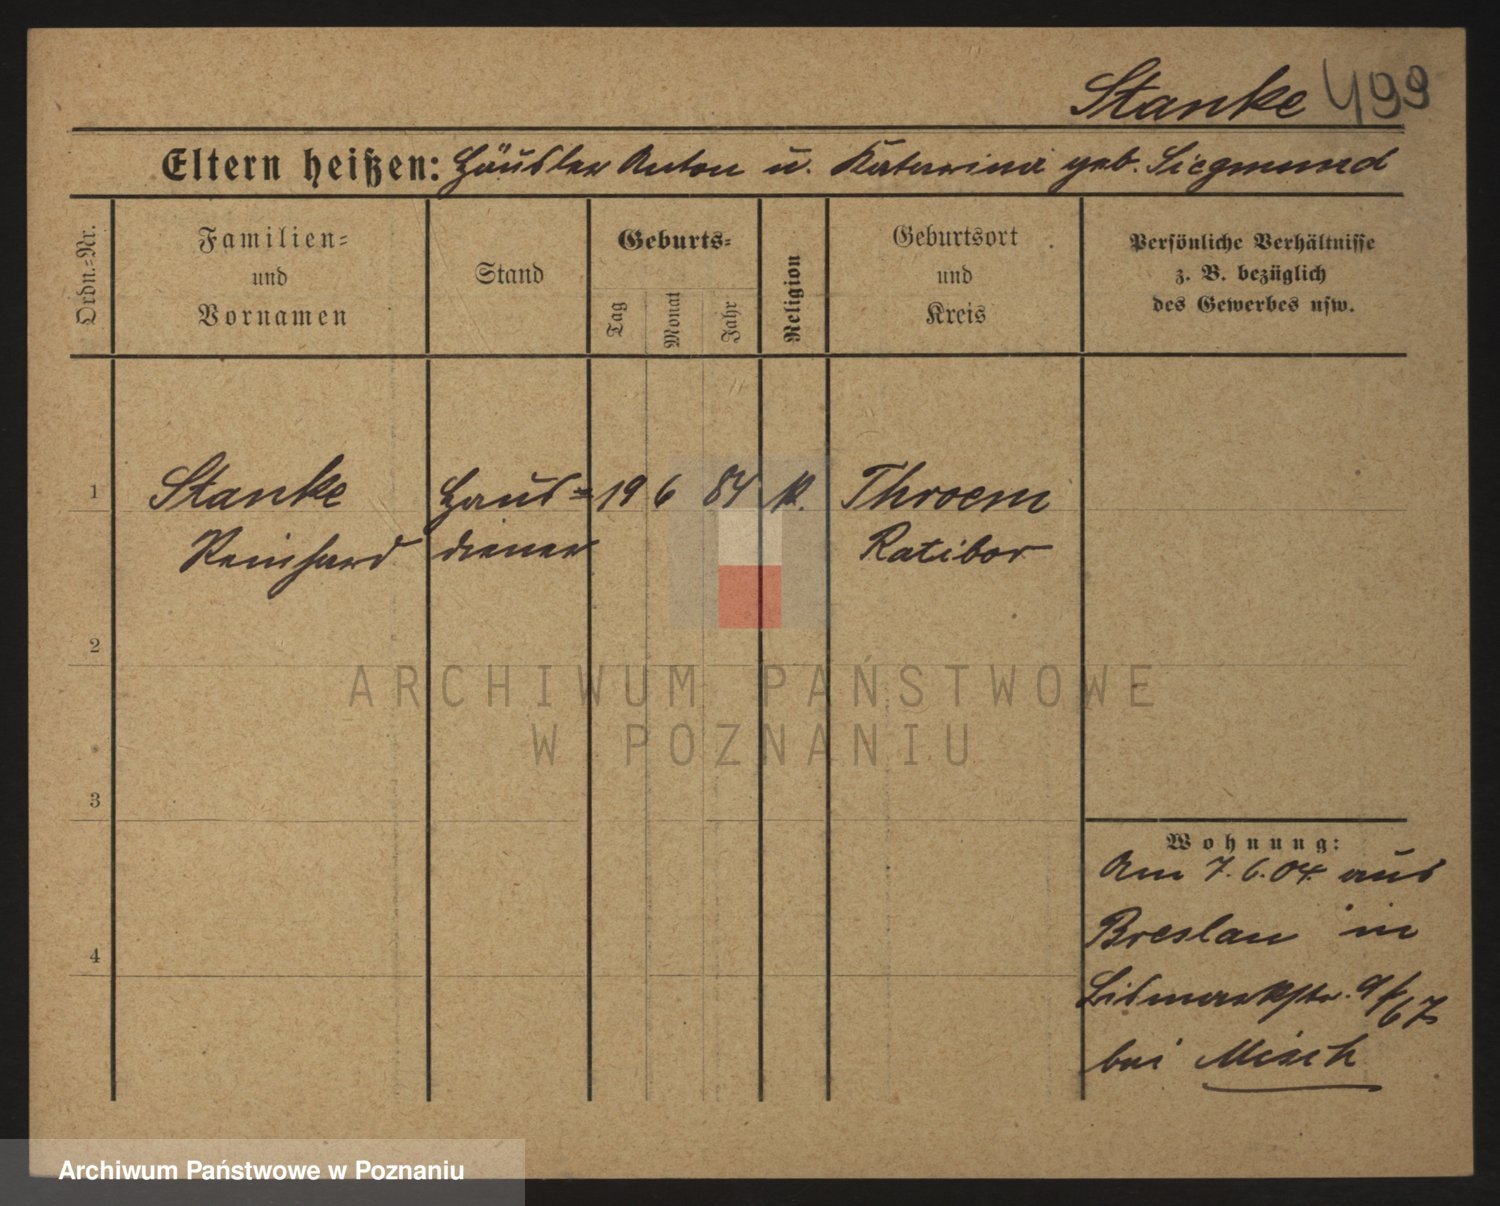 Stanke 499
Eltern heißen: Häusler Anton u. Katarina geb. Siegmund
Ordn.=Nr.
Familien=
und
Vornamen
Stand
Geburts=
Tag
Monat
Jahr
Religion
Geburtsort
und
Kreis
Persönliche Verhältnisse
z. B. bezüglich
des Gewerbes usw.
1 Stanke Haus= 19 6 84 k. Throem
Reinhard diener Ratibor
2
3
4
Wohnung:
Am 7.6.04 aus
Breslau in
Bismarckstr. 9/
bei Misch
ARCHIWUM PAŃSTWOWE
W POZNANIU
Archiwum Państwowe w Poznaniu